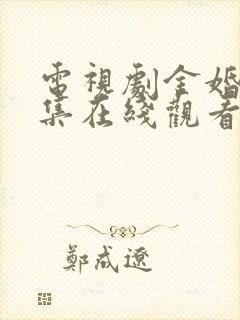 電視劇金婚
集在綫觀看
鄭成遼